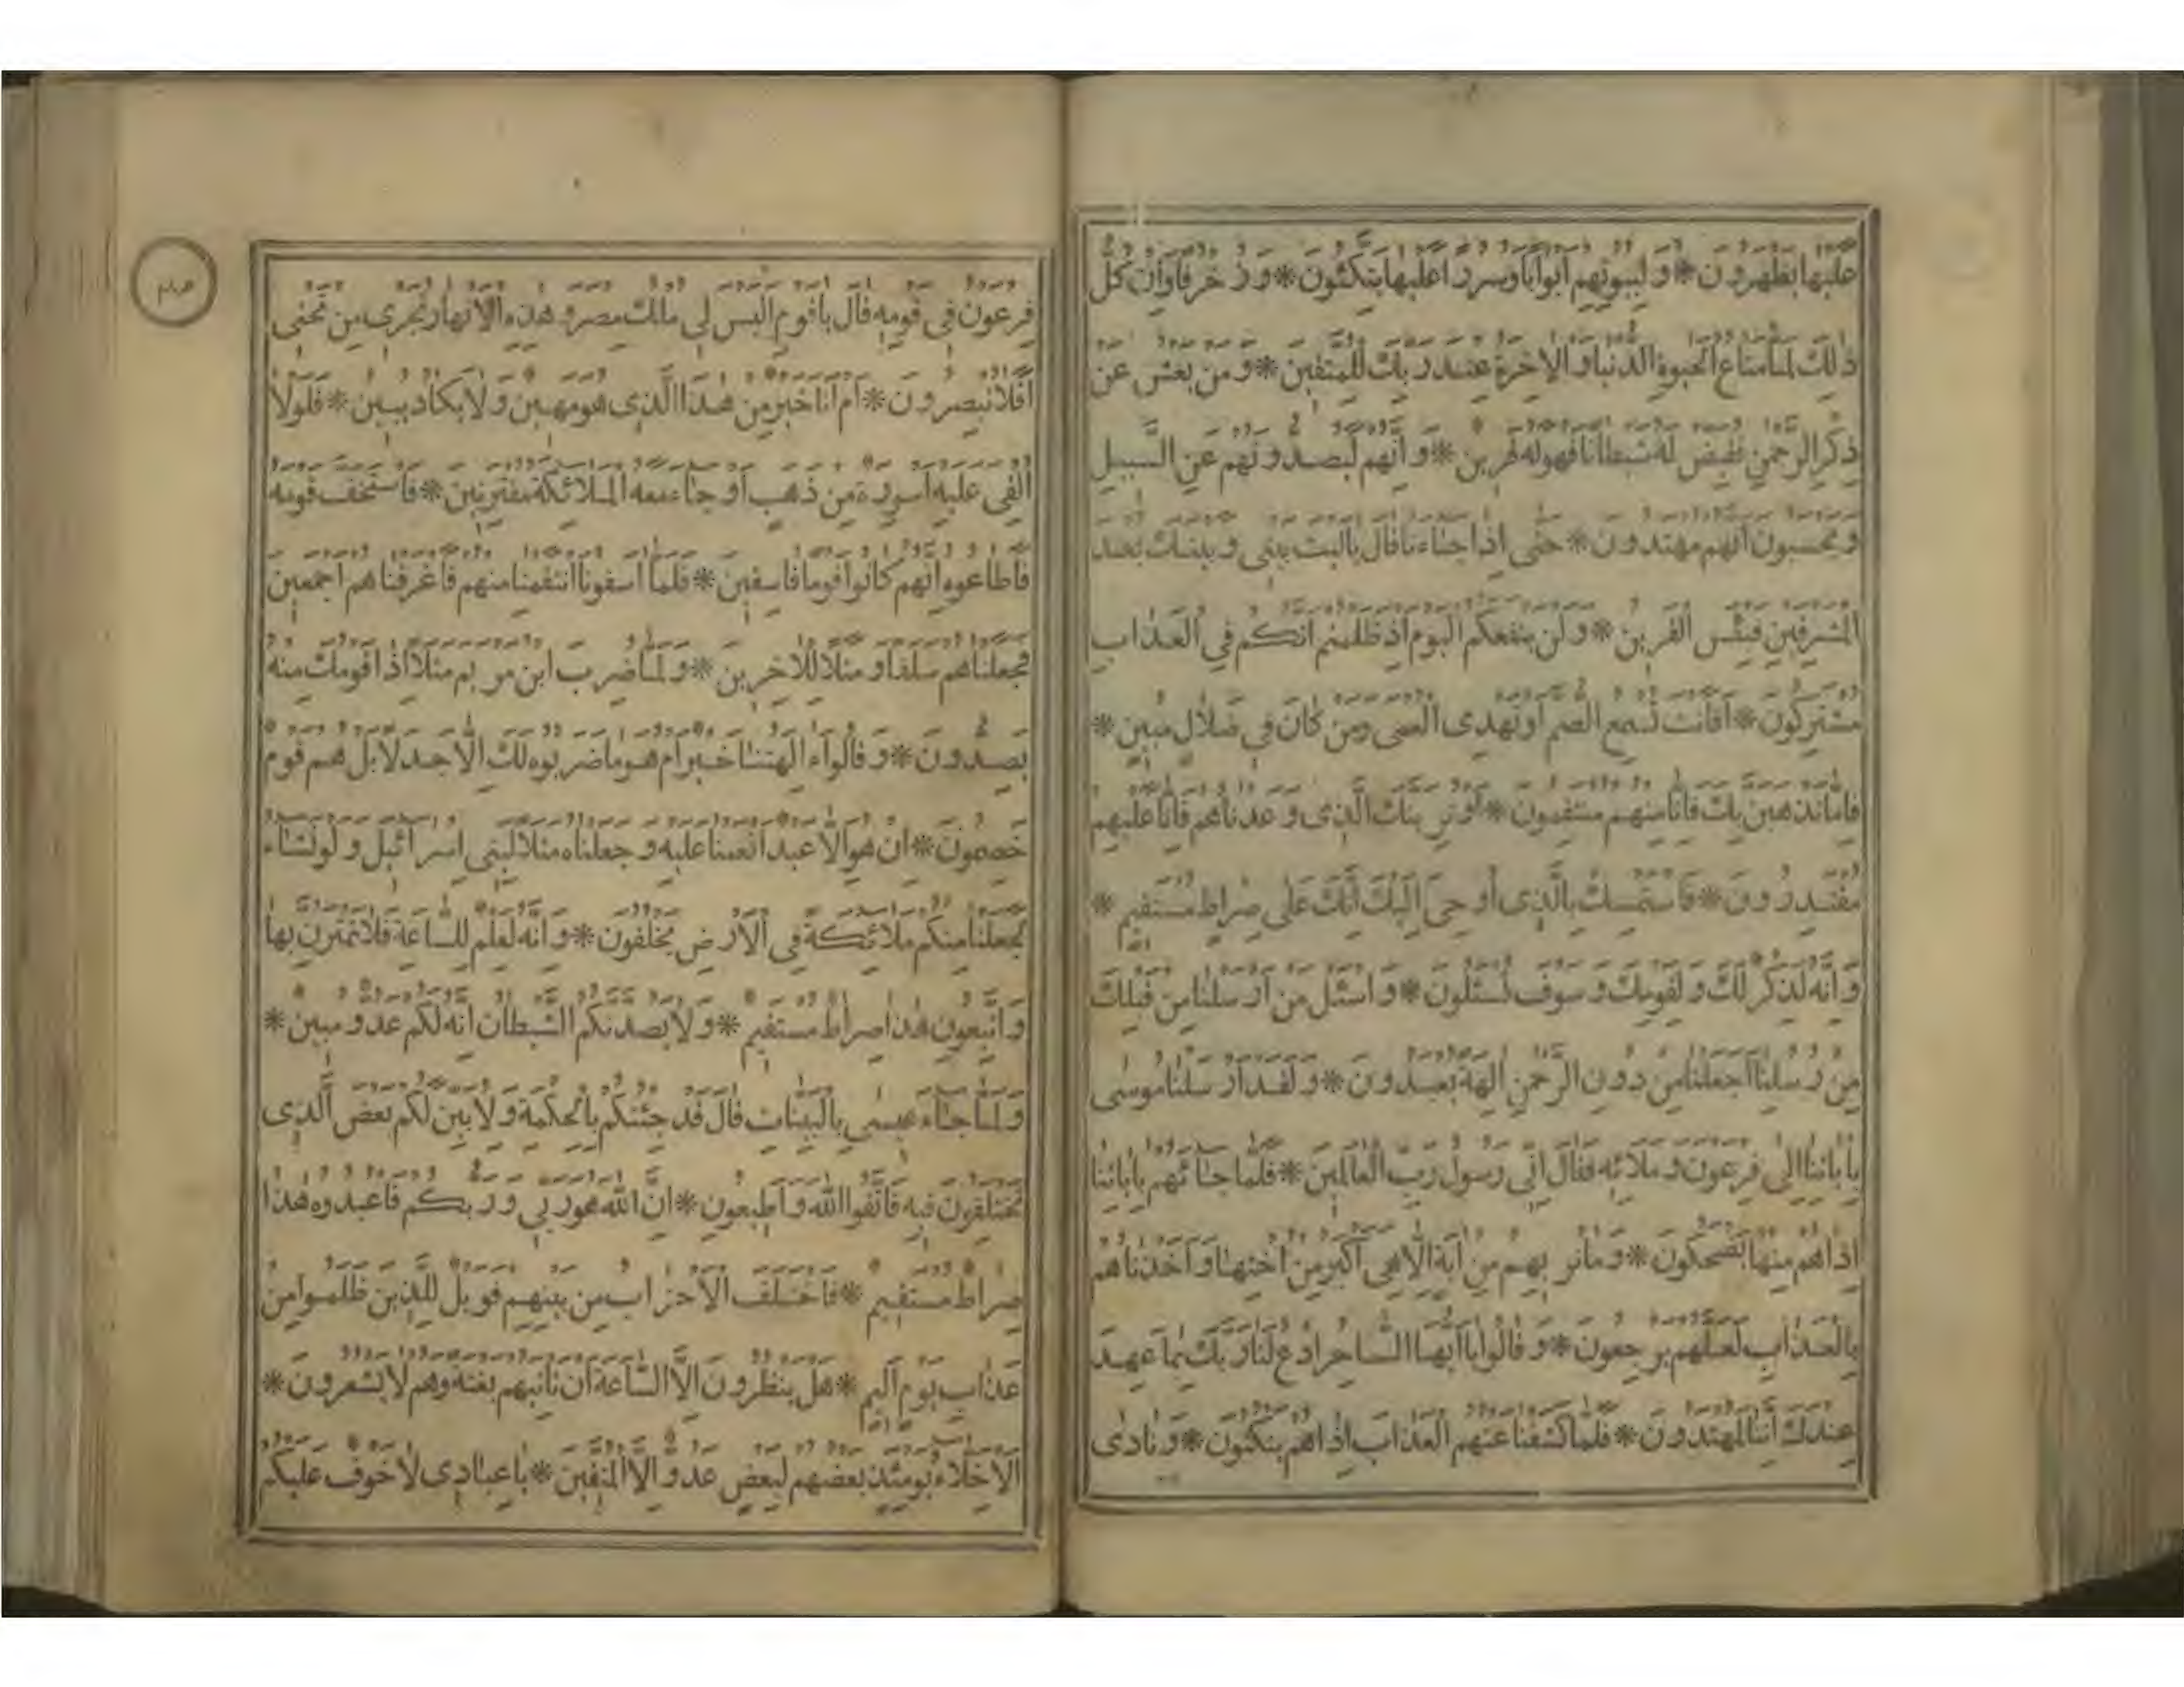 عليها يظهرون * ولبيوتهم ابوابا وسررا عليها يتكئون * وزخرفا وان كل
ذلك لما متاع الحيوة الدنيا والاخرة عند ربك للمتقين * ومن يعش عن
ذكر الرحمن نقيض له شيطانا فهو له قرين * وانهم ليصدونهم عن السبيل
ويحسبون انهم مهتدون * حتى اذا جاءنا قال ياليت بيني وبينك بعد
المشرقين فبئس القرين * ولن ينفعكم اليوم اذ ظلمتم انكم في العذاب
مشتركون * افانت تسمع الصم او تهدى العمى ومن كان في ضلال مبين *
فاما نذهبن بك فانا منهم منتقمون * او نرينك الذى وعدناهم فانا عليهم
مقتدرون * فاستمسك بالذى اوحى اليك انك على صراط مستقيم *
وانه لذكر لك ولقومك وسوف تسئلون * واسئل من ارسلنا من قبلك
من رسلنا اجعلنا من دون الرحمن الهة يعبدون * ولقد ارسلنا موسى
باياتنا الى فرعون وملائه فقال انى رسول رب العالمين * فلما جائهم باياتنا
اذا هم منها يضحكون * وما نريهم من اية الا هى اكبر من اختها واخذناهم
بالعذاب لعلهم يرجعون * وقالوا يا ايها الساحر ادع لنا ربك بما عهد
عندك اننا لمهتدون * فلما كشفنا عنهم العذاب اذا هم ينكثون * ونادى
فرعون فى قومه قال يا قوم اليس لى ملك مصر وهذه الانهار تجرى من تحتى
افلا تبصرون * ام انا خير من هذا الذى هو مهين ولا يكاد يبين * فلولا
القى عليه اسورة من ذهب او جاء معه الملائكة مقترنين * فاستخف قومه
فاطاعوه انهم كانوا قوما فاسقين * فلما اسفونا انتقمنا منهم فاغرقناهم اجمعين
فجعلناهم سلفا ومثلا للاخرين * ولما ضرب ابن مريم مثلا اذا قومك منه
يصدون * وقالوا ءالهتنا خير ام هو ما ضربوه لك الا جدلا بل هم قوم
خصمون * ان هو الا عبد انعمنا عليه وجعلناه مثلا لبنى اسرائيل ولو نشاء
لجعلنا منكم ملائكة فى الارض يخلفون * وانه لعلم للساعة فلا تمترن بها
واتبعون هذا صراط مستقيم * ولا يصدنكم الشيطان انه لكم عدو مبين *
ولما جاء عيسى بالبينات قال قد جئتكم بالحكمة ولابين لكم بعض الذى
تختلفون فيه فاتقوا الله واطيعون * ان الله هو ربى وربكم فاعبدوه هذا
صراط مستقيم * فاختلف الاحزاب من بينهم فويل للذين ظلموا من
عذاب يوم اليم * هل ينظرون الا الساعة ان تاتيهم بغتة وهم لا يشعرون *
الاخلاء يومئذ بعضهم لبعض عدو الا المتقين * يا عبادى لا خوف عليكم